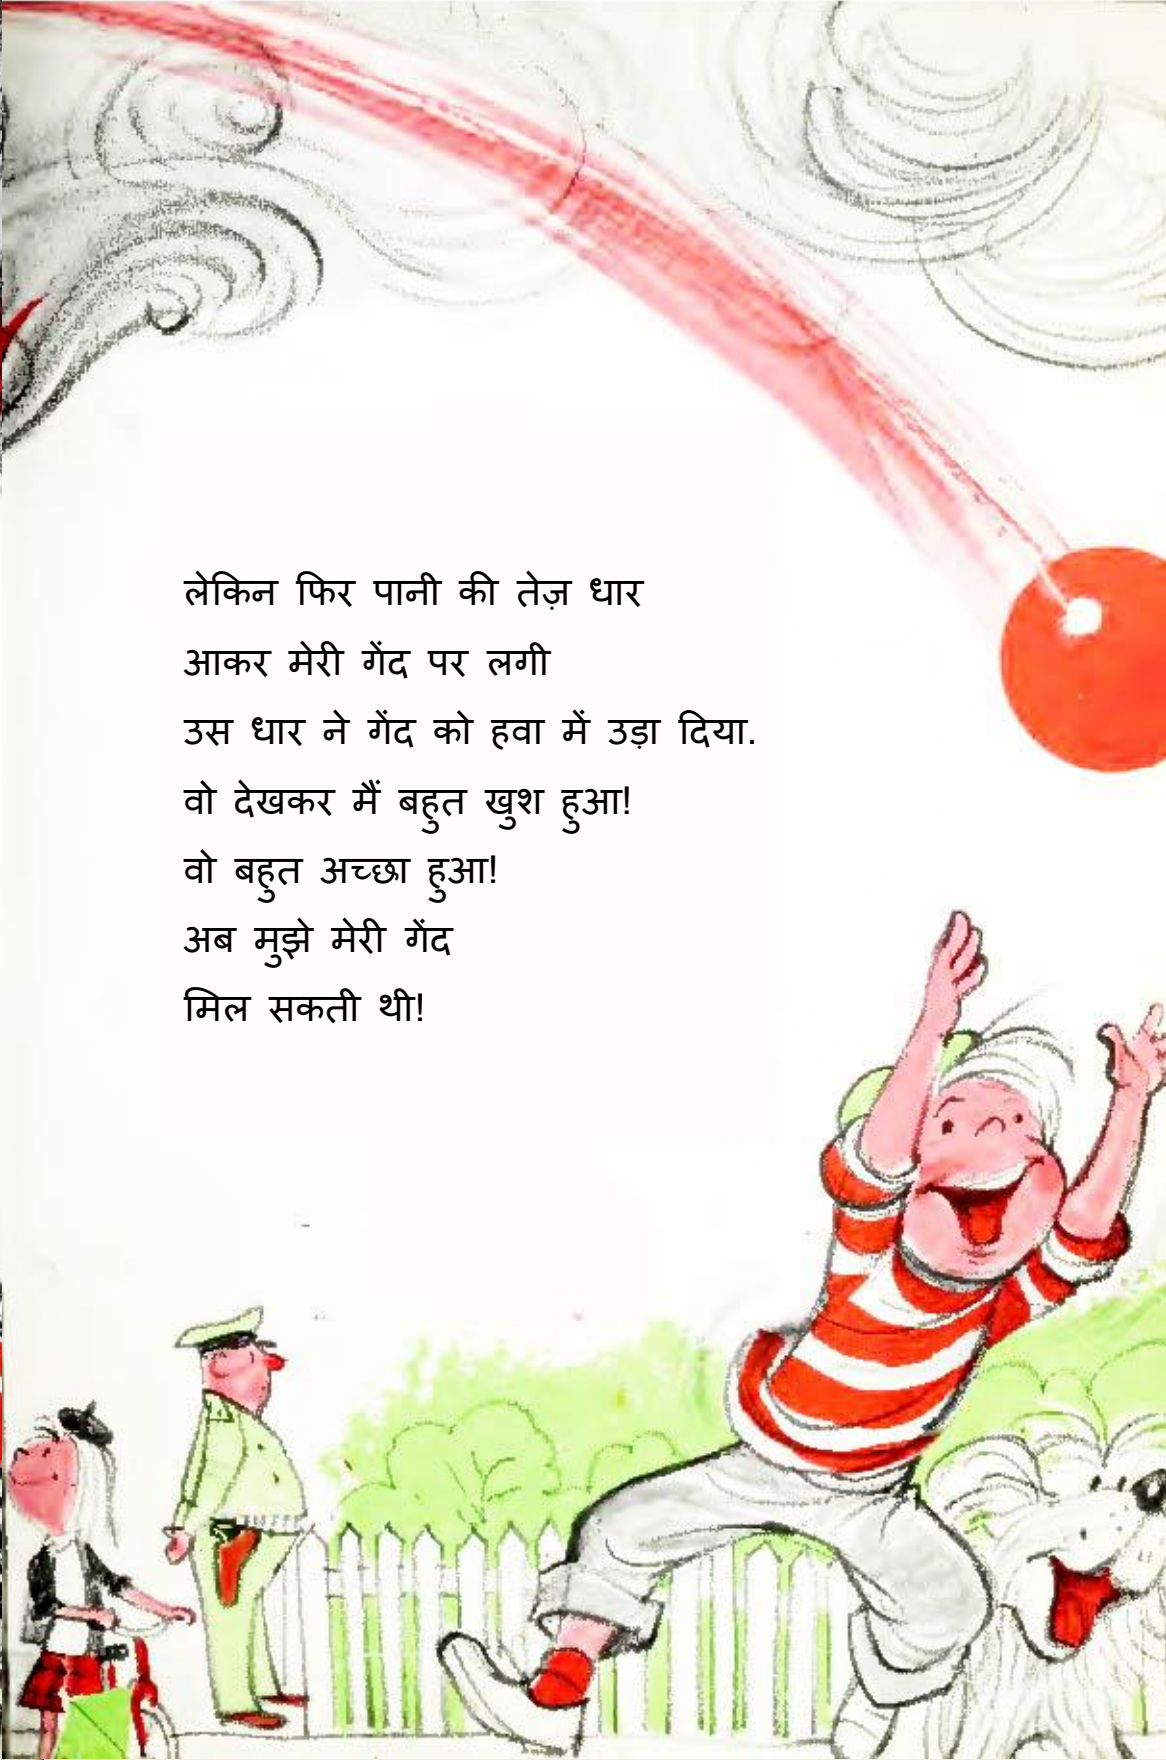 लेकिन फिर पानी की तेज़ धार
आकर मेरी गेंद पर लगी
उस धार ने गेंद को हवा में उड़ा दिया.
वो देखकर मैं बहुत खुश हुआ!
वो बहुत अच्छा हुआ!
अब मुझे मेरी गेंद
मिल सकती थी!